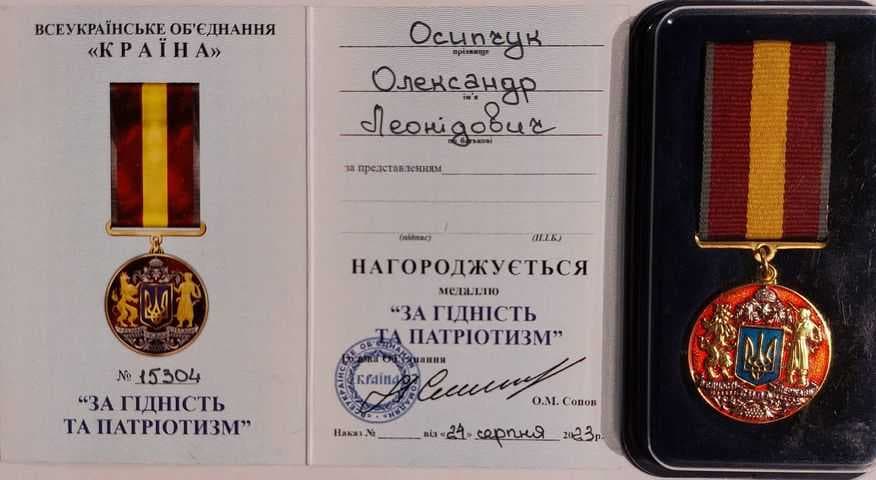 ВСЕУКРАЇНСЬКЕ ОБ'ЄДНАННЯ
«КРАЇНА»
№ 15304
“ЗА ГІДНІСТЬ
ТА ПАТРІОТИЗМ”
Осипчук
прізвище
Олександр
ім'я
Леонідович
по батькові
за представленням
(підпис) (П.І.Б.)
НАГОРОДЖУЄТЬСЯ
медаллю
“ЗА ГІДНІСТЬ
ТА ПАТРІОТИЗМ”
Голова Об'єднання
КРАЇНА
О.М. Сопов
Наказ № від «24» серпня 2023р.